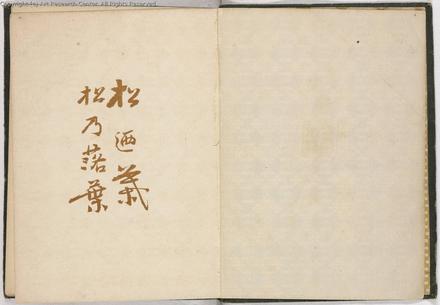 Copyright(c) Art Research Center. All Rights Reserved.
松迺葉
松乃落葉